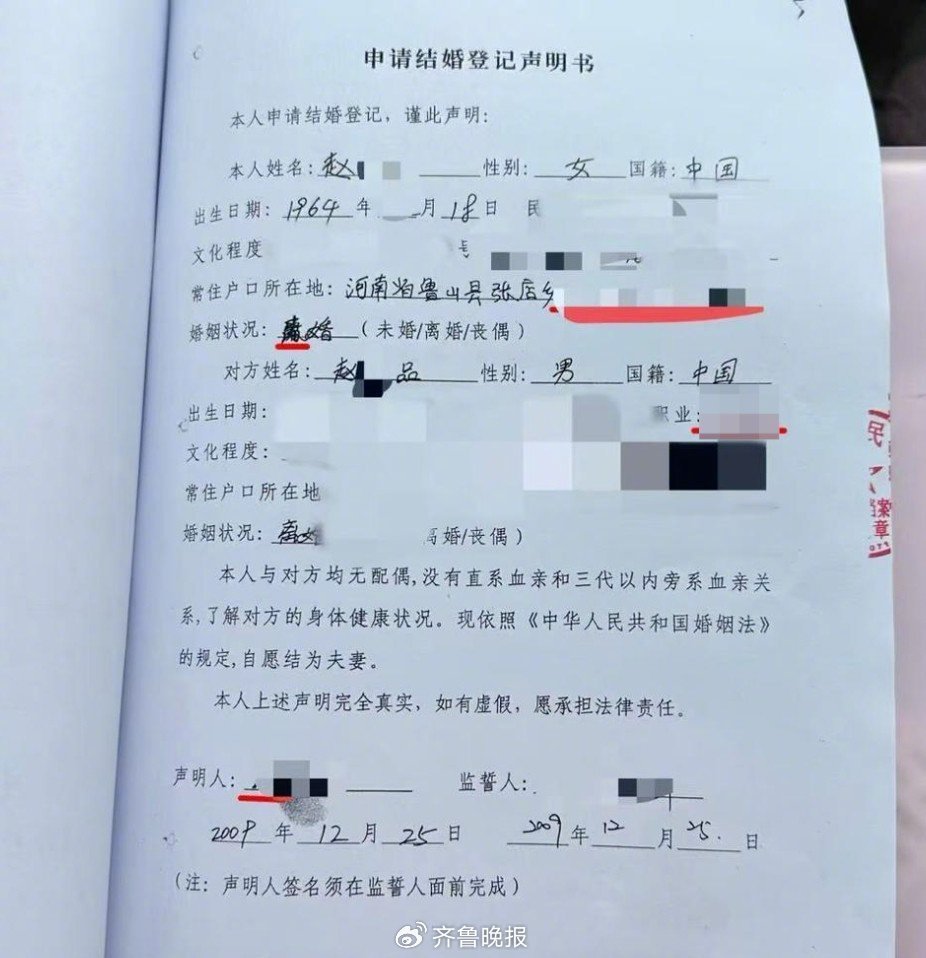 申请结婚登记声明书
本人申请结婚登记，谨此声明：
本人姓名：赵 性别：女 国籍：中国
出生日期：1964年 月18日 民
文化程度
常住户口所在地：河南省鲁山县张店乡
婚姻状况：离婚（未婚/离婚/丧偶）
对方姓名：赵 品 性别：男 国籍：中国
出生日期： 职业：
文化程度：
常住户口所在地
婚姻状况：离婚 离婚/丧偶）
本人与对方均无配偶,没有直系血亲和三代以内旁系血亲关
系,了解对方的身体健康状况。现依照《中华人民共和国婚姻法》
的规定,自愿结为夫妻。
本人上述声明完全真实，如有虚假，愿承担法律责任。
声明人： 监誓人：
2009年12月25日 2009年12月25.日
（注：声明人签名须在监誓人面前完成）
民
档案
章
齐鲁晚报